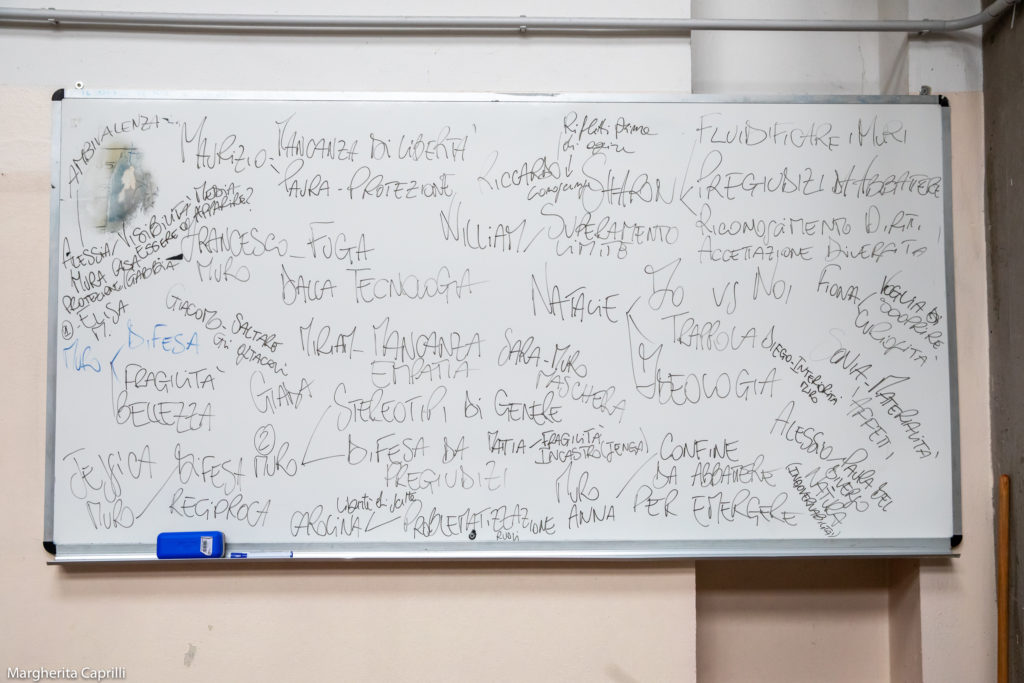 AMBIVALENZA
MAURIZIO MANCANZA DI LIBERTÀ
PAURA - PROTEZIONE
ALESSIA / VISIBILITÀ MEDIA
MURA CASA ESSERE O APPARIRE?
PROTEZIONE/GABBIA
① - ELISA
M.
FRANCESCO - FUGA
MURO DALLA TECNOLOGIA
RICCARDO
Rifletti prima
di agire
conoscenza
SHARON
FLUIDIFICARE i MURI
PREGIUDIZI DA ABBATTERE
RICONOSCIMENTO DIRITTI
ACCETTAZIONE DIVERSITÀ
WILLIAM / SUPERAMENTO
LIMITE
NATALIE
IO VS NOI
TRAPPOLA di
IDEOLOGIA
FIONA VOGLIA DI
SCOPRIRE
CURIOSITÀ
MURO DIFESA
FRAGILITÀ
BELLEZZA
GIACOMO - SALTARE
Gli OSTACOLI
MIRIAM - MANCANZA
EMPATIA
SARA - MURO
MASCHERA
DIEGO - INTERIORITÀ
MURO
SONIA - MATERIALITÀ
AFFETTI
GIADA
② MURO
STEREOTIPI DI GENERE
DIFESA DA
PREGIUDIZI
MATTIA - FRAGILITÀ
INCASTRO (JENGA)
JESSICA DIFESA
MURO RECIPROCA
CAROLINA
Libertà di
PROBLEMATIZZAZIONE
RUOLI
MURO
ANNA
CONFINE
DA ABBATTERE
PER EMERGERE
ALESSIO - PAURA DEL
DIVERSO
NATURA
Margherita Caprilli